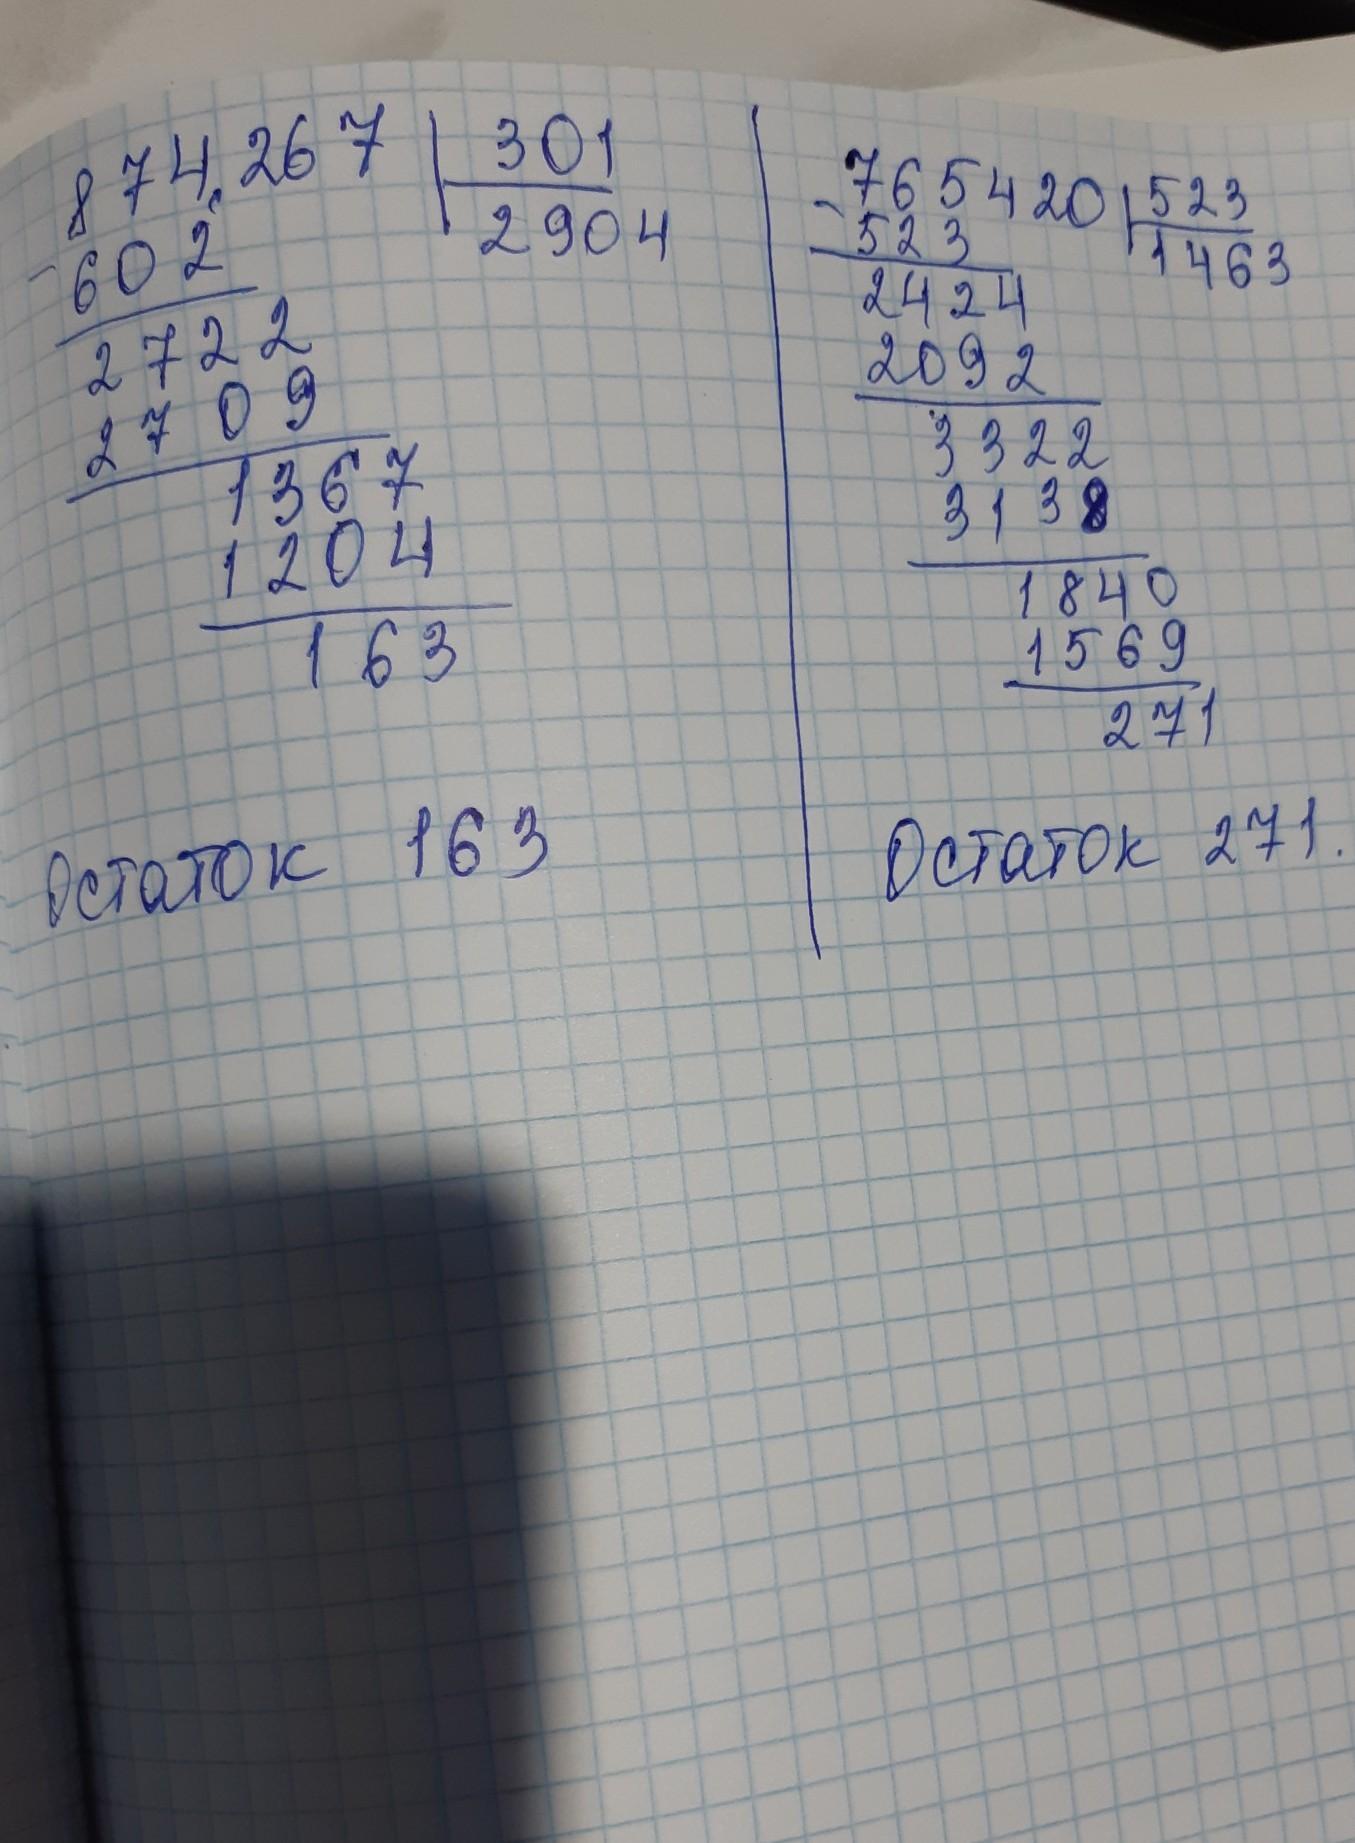 874267 301
602 2904
2722
2709
1367
1204
163
Остаток 163
765420 523
523 1463
2424
2092
3322
3138
1840
1569
271
Остаток 271.